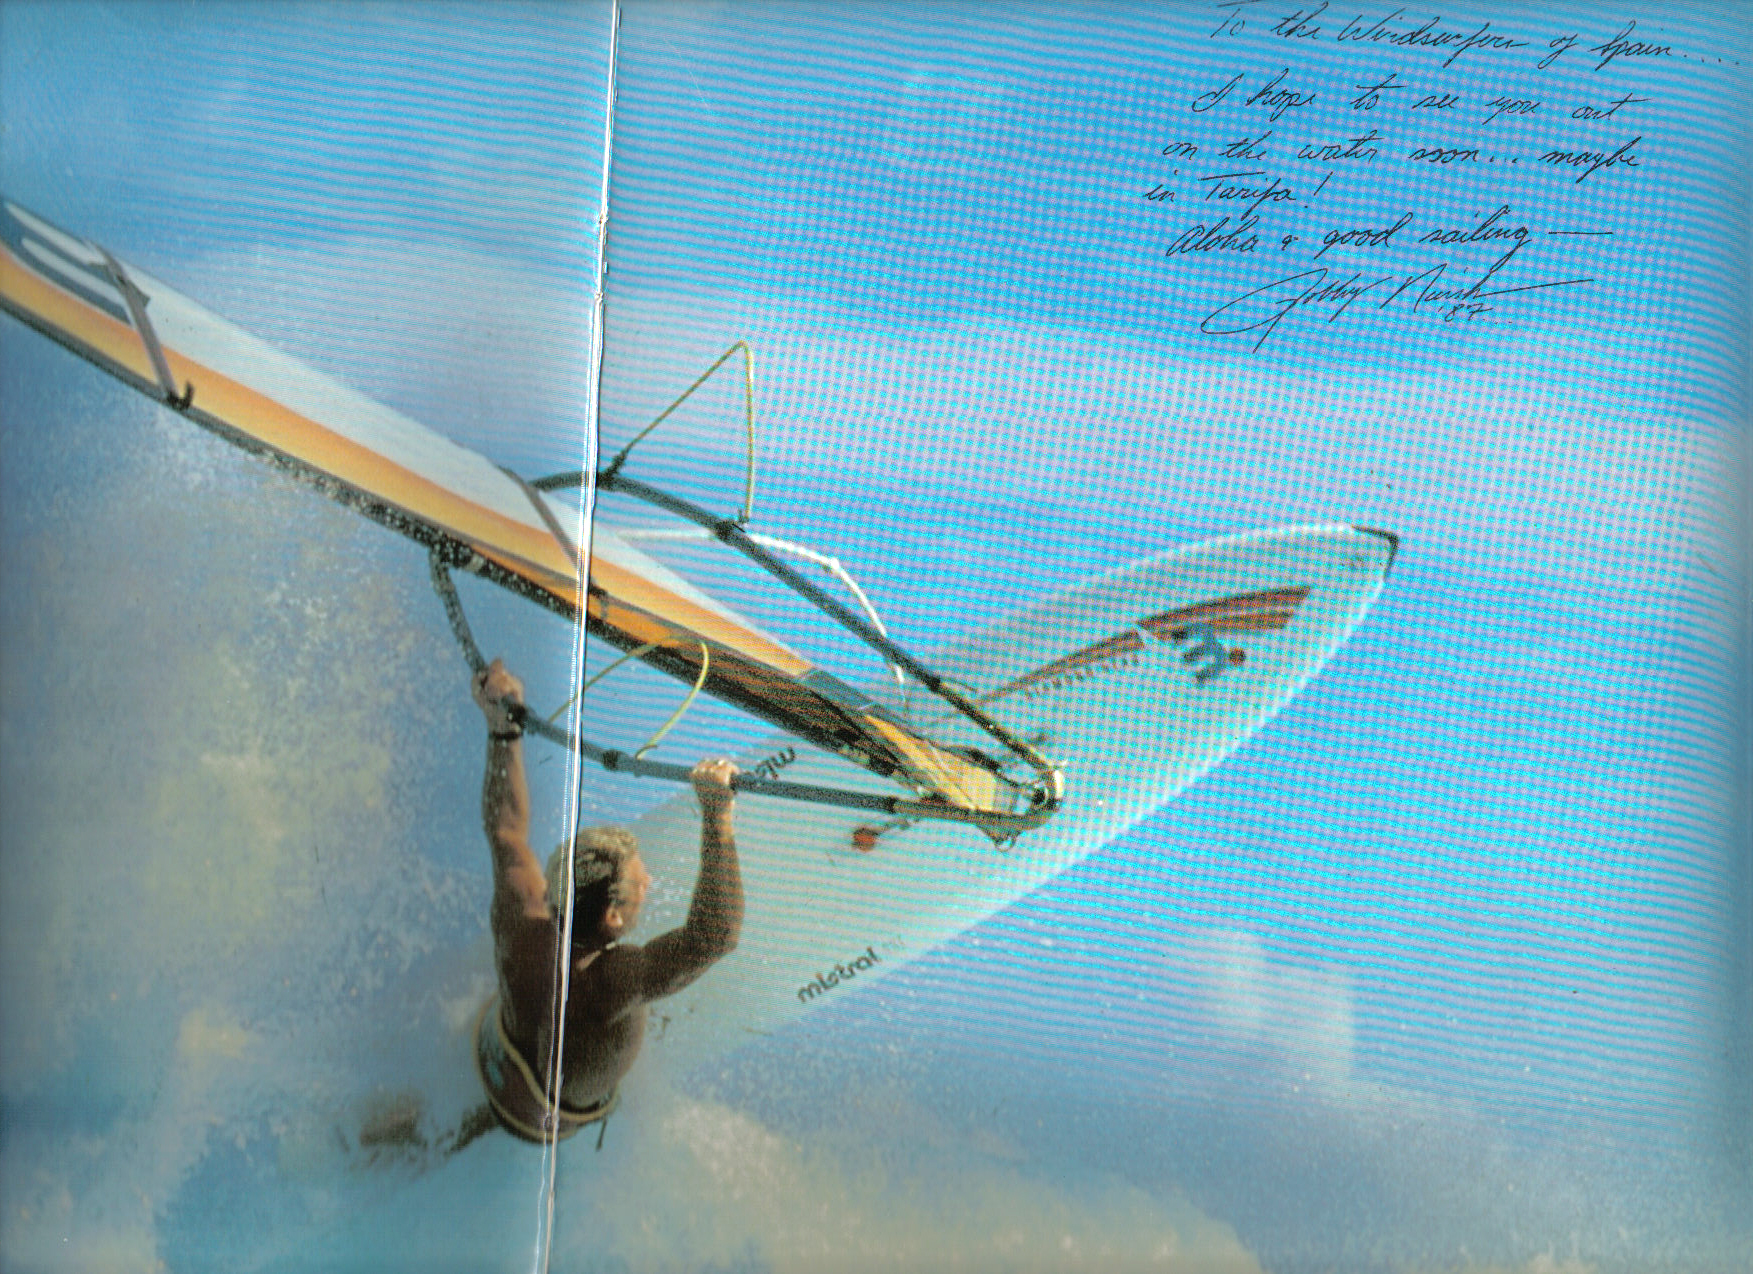 To the Windsurfers of Spain....
I hope to see you out
on the water soon... maybe
in Tarifa!
Aloha & good sailing —
Robby Naish
'87
mistral
mistral